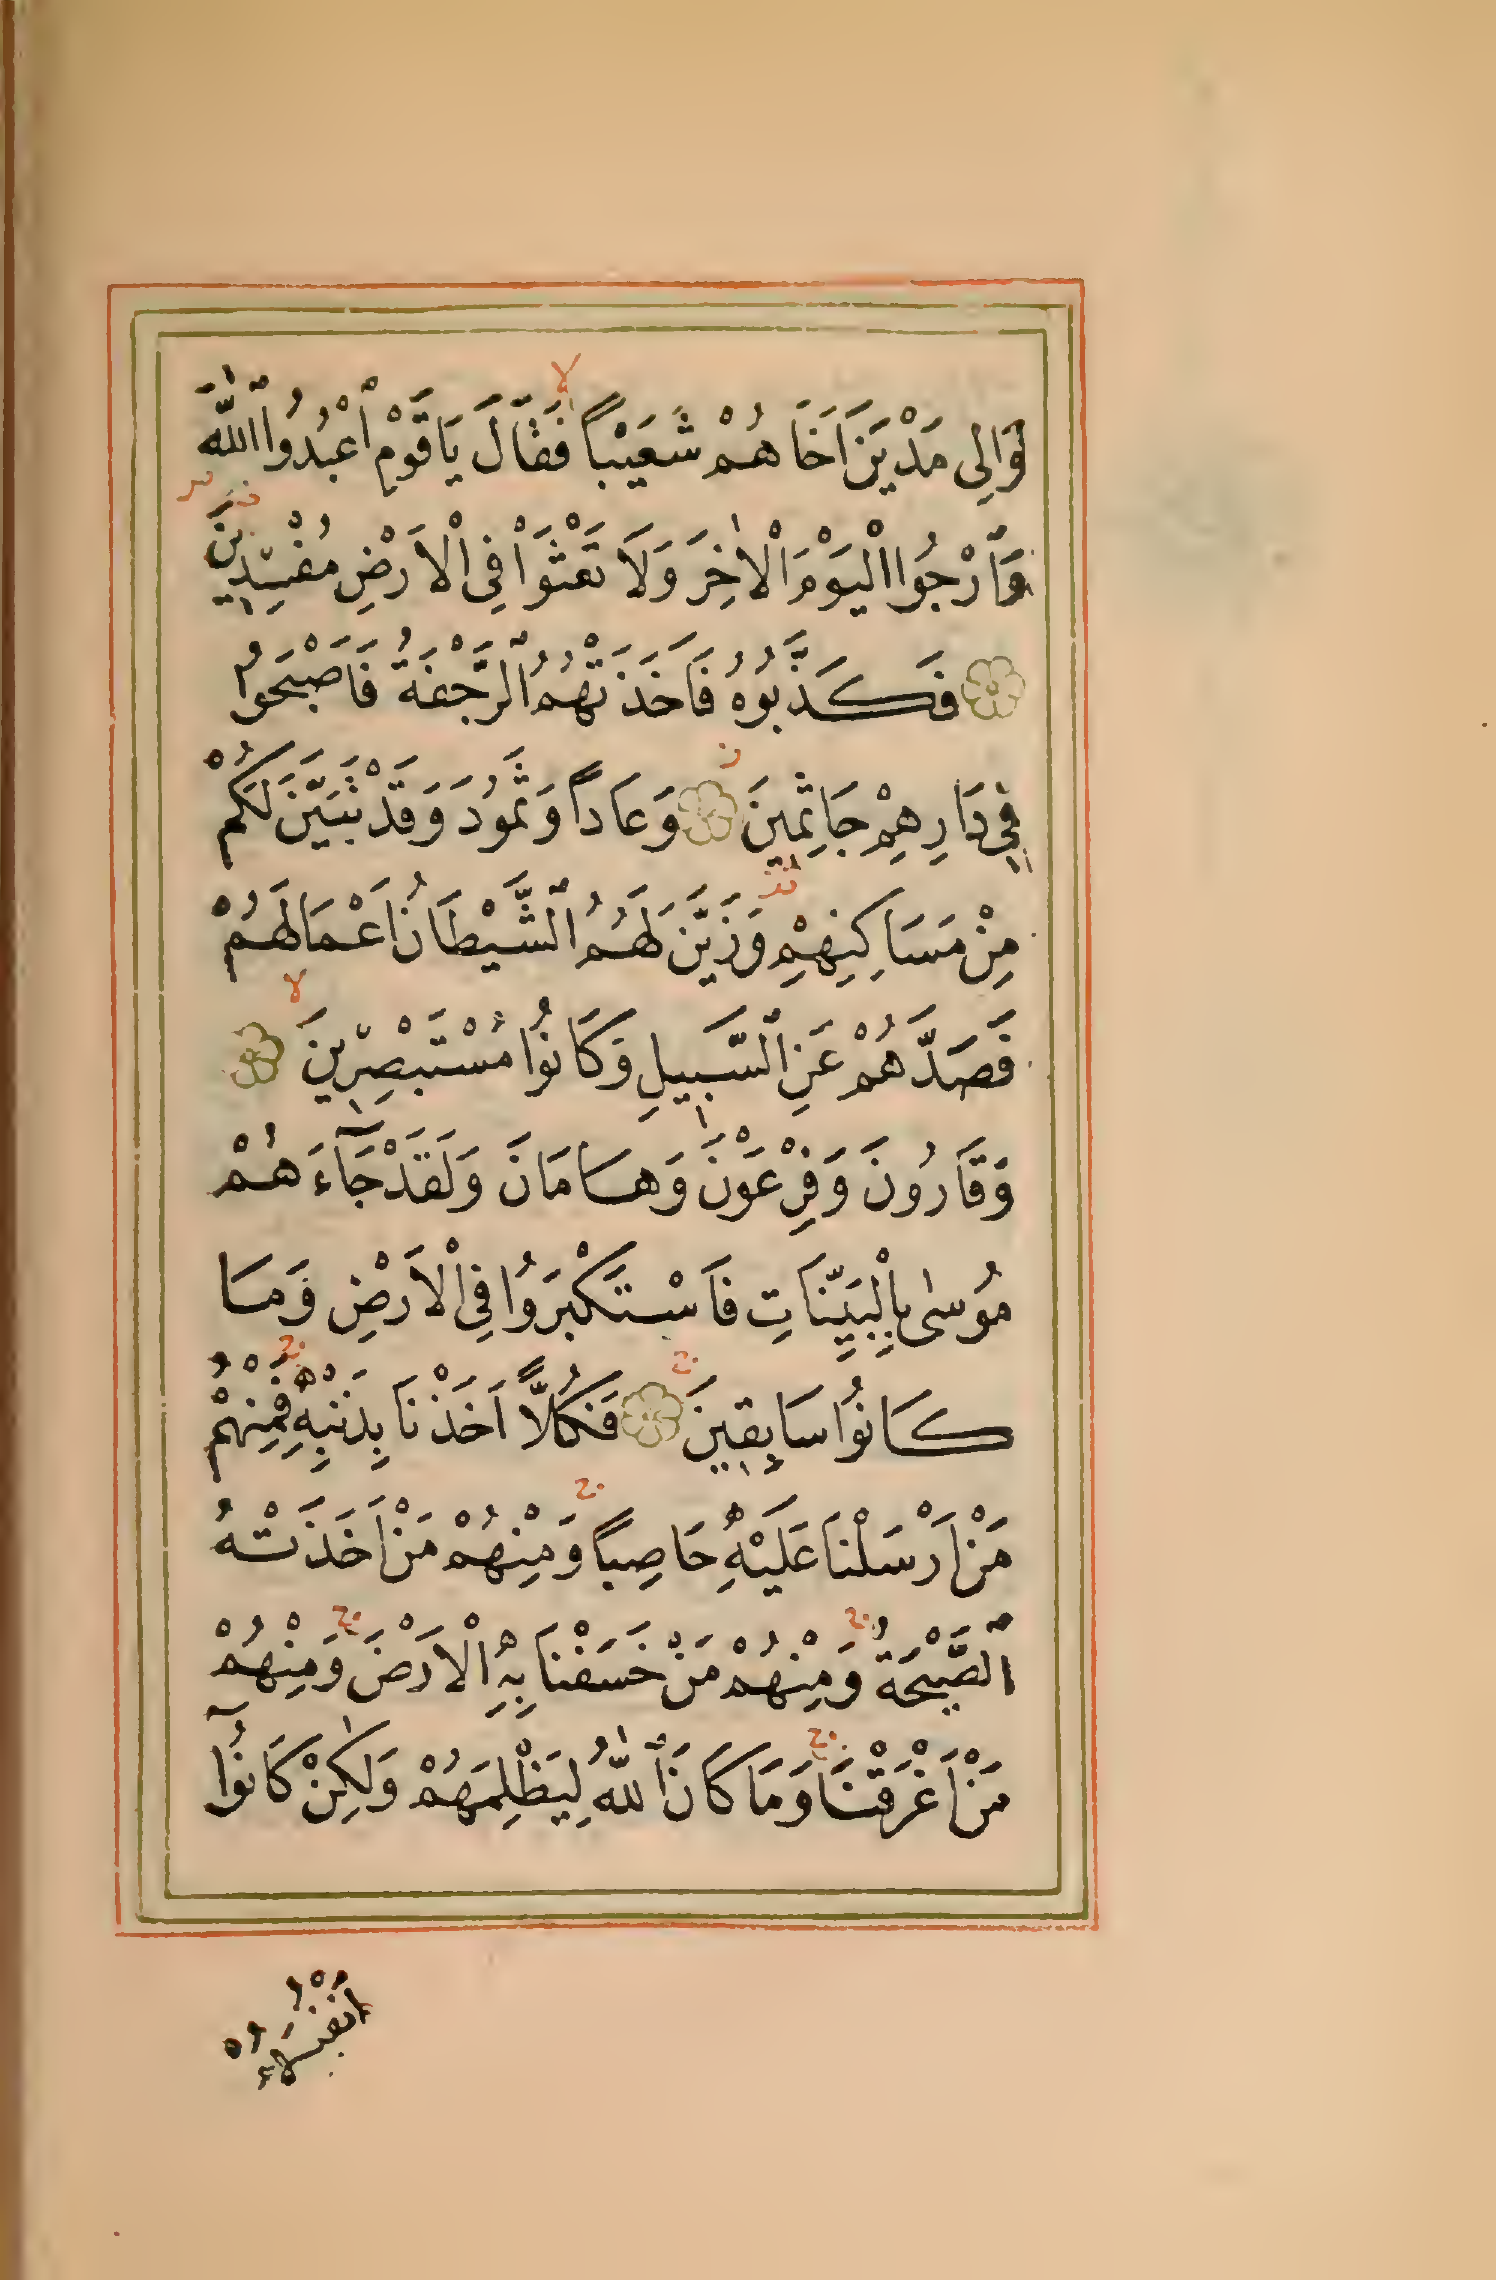 وَاِلٰى مَدْيَنَ اَخَاهُمْ شُعَيْبًا فَقَالَ يَاقَوْمِ ٱعْبُدُوا ٱللّٰهَ
وَٱرْجُوا الْيَوْمَ الْاٰخِرَ وَلَا تَعْثَوْا فِى الْاَرْضِ مُفْسِدِينَ
فَكَذَّبُوهُ فَاَخَذَتْهُمُ ٱلرَّجْفَةُ فَاَصْبَحُوا
فِى دَارِهِمْ جَاثِمِينَ وَعَادًا وَثَمُودَ وَقَدْ تَبَيَّنَ لَكُمْ
مِنْ مَسَاكِنِهِمْ وَزَيَّنَ لَهُمُ ٱلشَّيْطَانُ اَعْمَالَهُمْ
فَصَدَّهُمْ عَنِ ٱلسَّبِيلِ وَكَانُوا مُسْتَبْصِرِينَ
وَقَارُونَ وَفِرْعَوْنَ وَهَامَانَ وَلَقَدْ جَآءَهُمْ
مُوسٰى بِالْبَيِّنَاتِ فَاسْتَكْبَرُوا فِى الْاَرْضِ وَمَا
كَانُوا سَابِقِينَ فَكُلًّا اَخَذْنَا بِذَنْبِهِ فَمِنْهُمْ
مَنْ اَرْسَلْنَا عَلَيْهِ حَاصِبًا وَمِنْهُمْ مَنْ اَخَذَتْهُ
ٱلصَّيْحَةُ وَمِنْهُمْ مَنْ خَسَفْنَا بِهِ الْاَرْضَ وَمِنْهُمْ
مَنْ اَغْرَقْنَا وَمَا كَانَ ٱللّٰهُ لِيَظْلِمَهُمْ وَلٰكِنْ كَانُوٓا
اَنْفُسَهُمْ